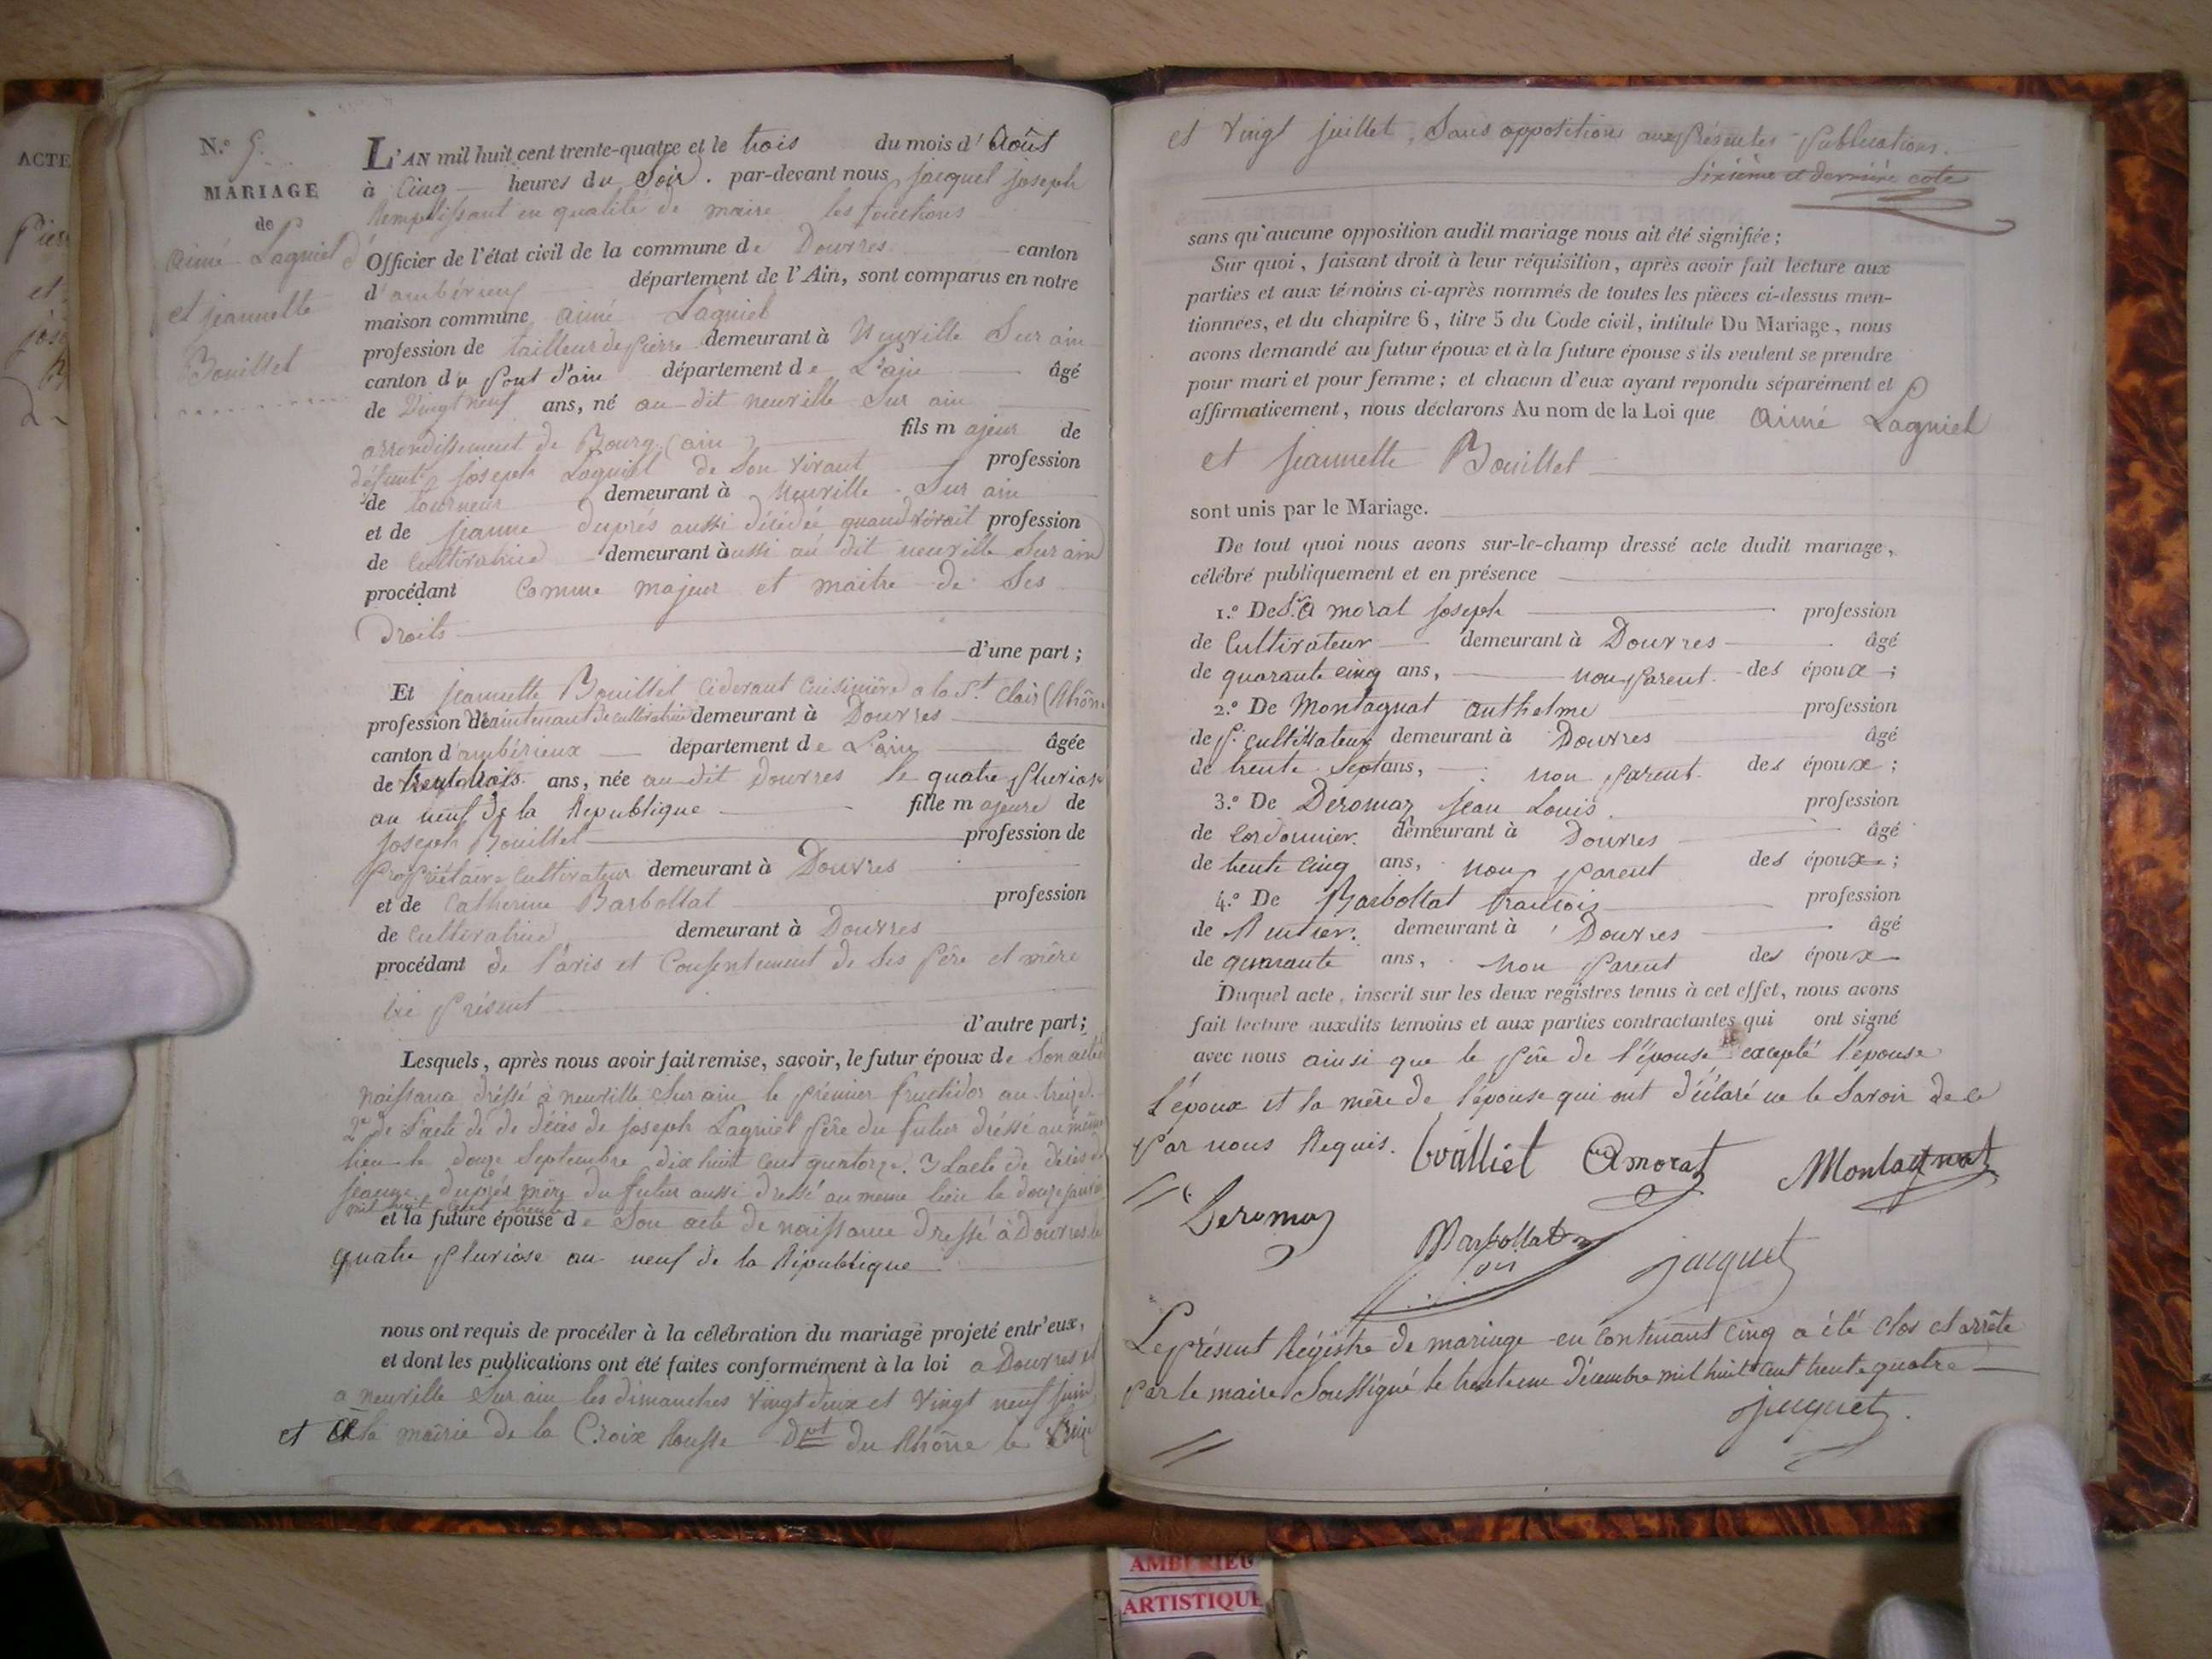 ACTE
N.º 5.
MARIAGE
de
aimé Lagniel
et jeannette
Bouillet
L'AN mil huit cent trente-quatre et le trois du mois d'Août
à Cinq heures du Soir. par-devant nous jacquet joseph
Remplissant en qualité de maire les fonctions
d'Officier de l'état civil de la commune de Douvres canton
d'ambérieux département de l'Ain, sont comparus en notre
maison commune aimé Lagniel
profession de tailleur de pierre demeurant à Neuville Sur ain
canton du pont d'ain département de L'ain âgé
de Vingt neuf ans, né au dit neuville Sur ain
arrondissement de Bourg (ain) fils majeur de
défunt joseph Lagniel de Son vivant profession
de tourneur demeurant à Neuville Sur ain
et de jeanne duprés aussi décédée quand vivait profession
de Cultivatrice demeurant à aussi au dit neuville Sur ain
procédant Comme majeur et maitre de Ses
Droits
d'une part ;
Et jeannette Bouillet Cidevant Cuisinière a la St. Clair (Rhône
profession maintenant de cultivatrice demeurant à Douvres
canton d'ambérieux département de L'ain âgée
de trente trois ans, née au dit Douvres le quatre pluviose
an neuf de la République fille majeure de
joseph Bouillet profession de
propriétaire Cultivateur demeurant à Douvres
et de Catherine Barbollat profession
de Cultivatrice demeurant à Douvres
procédant de l'avis et Consentement de Ses père et mère
ici présent
d'autre part ;
Lesquels, après nous avoir fait remise, savoir, le futur époux de Son acte
naissance dréssé à neuville Sur ain le prémier fructidor an treize.
2º de L'acte de de décès de joseph Lagniel père du futur dréssé au même
lieu le douze Septembre dix huit Cent quatorze. 3 L'acte de décès de
jeanne duprés mère du futur aussi dressé au même lieu le douze janvier
mil huit Cent trente
et la future épouse de Son acte de naissance Dressé à Douvres le
quatre pluviose an neuf de la République
nous ont requis de procéder à la célébration du mariage projeté entr'eux,
et dont les publications ont été faites conformément à la loi a Douvres et
a neuville Sur ain les dimanches Vingt deux et Vingt neuf juin
et à la mairie de la Croix Rousse Dpt du Rhône le
et Vingt juillet, Sans oppositions aux présentes publications.
Sixième et dernière cote
sans qu'aucune opposition audit mariage nous ait été signifiée ;
Sur quoi, faisant droit à leur réquisition, après avoir fait lecture aux
parties et aux témoins ci-après nommés de toutes les pièces ci-dessus men-
tionnées, et du chapitre 6, titre 5 du Code civil, intitulé Du Mariage, nous
avons demandé au futur époux et à la future épouse s'ils veulent se prendre
pour mari et pour femme ; et chacun d'eux ayant repondu séparément et
affirmativement, nous déclarons Au nom de la Loi que aimé Lagniel
et jeannette Bouillet
sont unis par le Mariage.
De tout quoi nous avons sur-le-champ dressé acte dudit mariage,
célébré publiquement et en présence
1.º De Sr. Amorat joseph profession
de Cultivateur demeurant à Douvres âgé
de quarante cinq ans, non parent des époux ;
2.º De Montagnat anthelme profession
de pr. cultivateur demeurant à Douvres âgé
de trente Sept ans, non parent des époux ;
3.º De Deromaz jean Louis profession
de Cordonnier. demeurant à Douvres âgé
de trente cinq ans, non parent des époux ;
4.º De Barbollat francois profession
de Rentier. demeurant à Douvres âgé
de quarante ans, non parent des époux
Duquel acte, inscrit sur les deux registres tenus à cet effet, nous avons
fait lecture auxdits temoins et aux parties contractantes qui ont signé
avec nous ainsi que le père de l'épouse excepté l'épouse
l'époux et la mère de l'épouse qui ont déclaré ne le Savoir de ce
par nous Requis. bouilliet amorat Montagnat
Deromaz
Barbollat
jacquet
Le présent Régistre de mariage en contenant Cinq a été Clos et arrêté
par le maire Soussigné le trente un Décembre mil huit cent trente quatre
jacquet
AMBERIEU
ARTISTIQUE